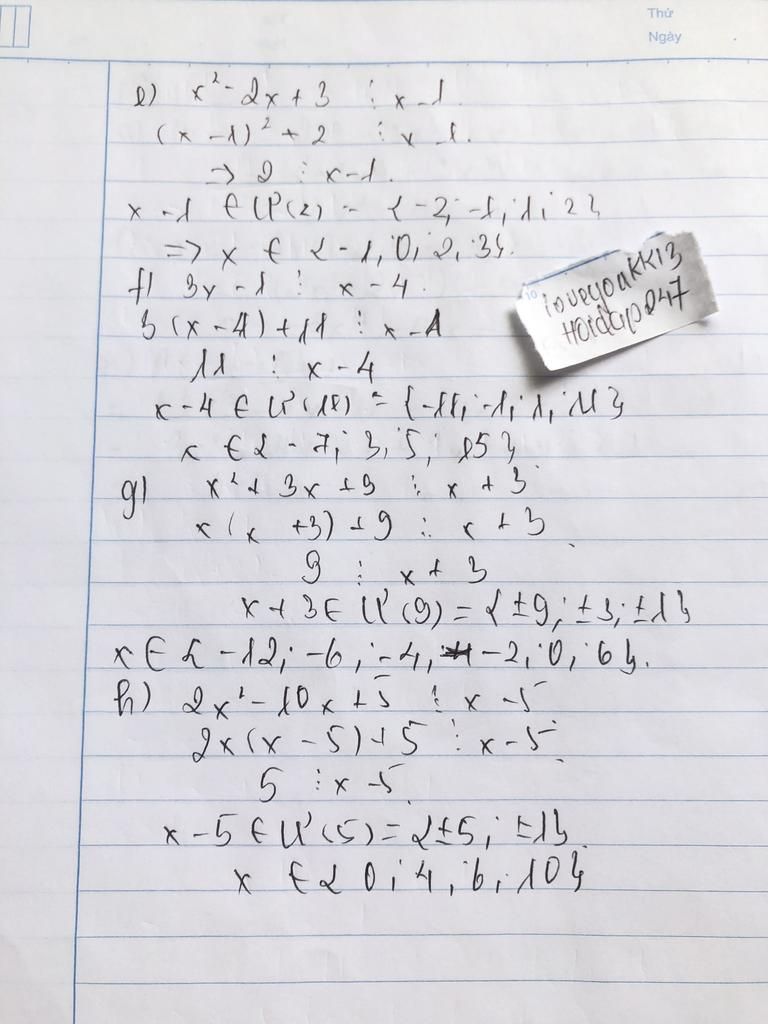 Thứ
Ngày
e) x² - 2x + 3 ⋮ x - 1
(x - 1)² + 2 ⋮ x - 1.
⇒ 2 ⋮ x - 1.
x - 1 ∈ Ư(2) = {-2; -1; 1; 2}
=> x ∈ {-1; 0; 2; 3}.
f) 3x - 1 ⋮ x - 4.
3(x - 4) + 11 ⋮ x - 4
11 ⋮ x - 4
x - 4 ∈ Ư(11) = {-11; -1; 1; 11}
x ∈ {-7; 3; 5; 15}
g) x² + 3x + 9 ⋮ x + 3
x(x + 3) + 9 ⋮ x + 3
9 ⋮ x + 3
x + 3 ∈ Ư(9) = {±9; ±3; ±1}
x ∈ {-12; -6; -4; -2; 0; 6}.
h) 2x² - 10x + 5 ⋮ x - 5
2x(x - 5) + 5 ⋮ x - 5
5 ⋮ x - 5
x - 5 ∈ Ư(5) = {±5; ±1}.
x ∈ {0; 4; 6; 10}
10
iloveyoukk13
Hoidap247